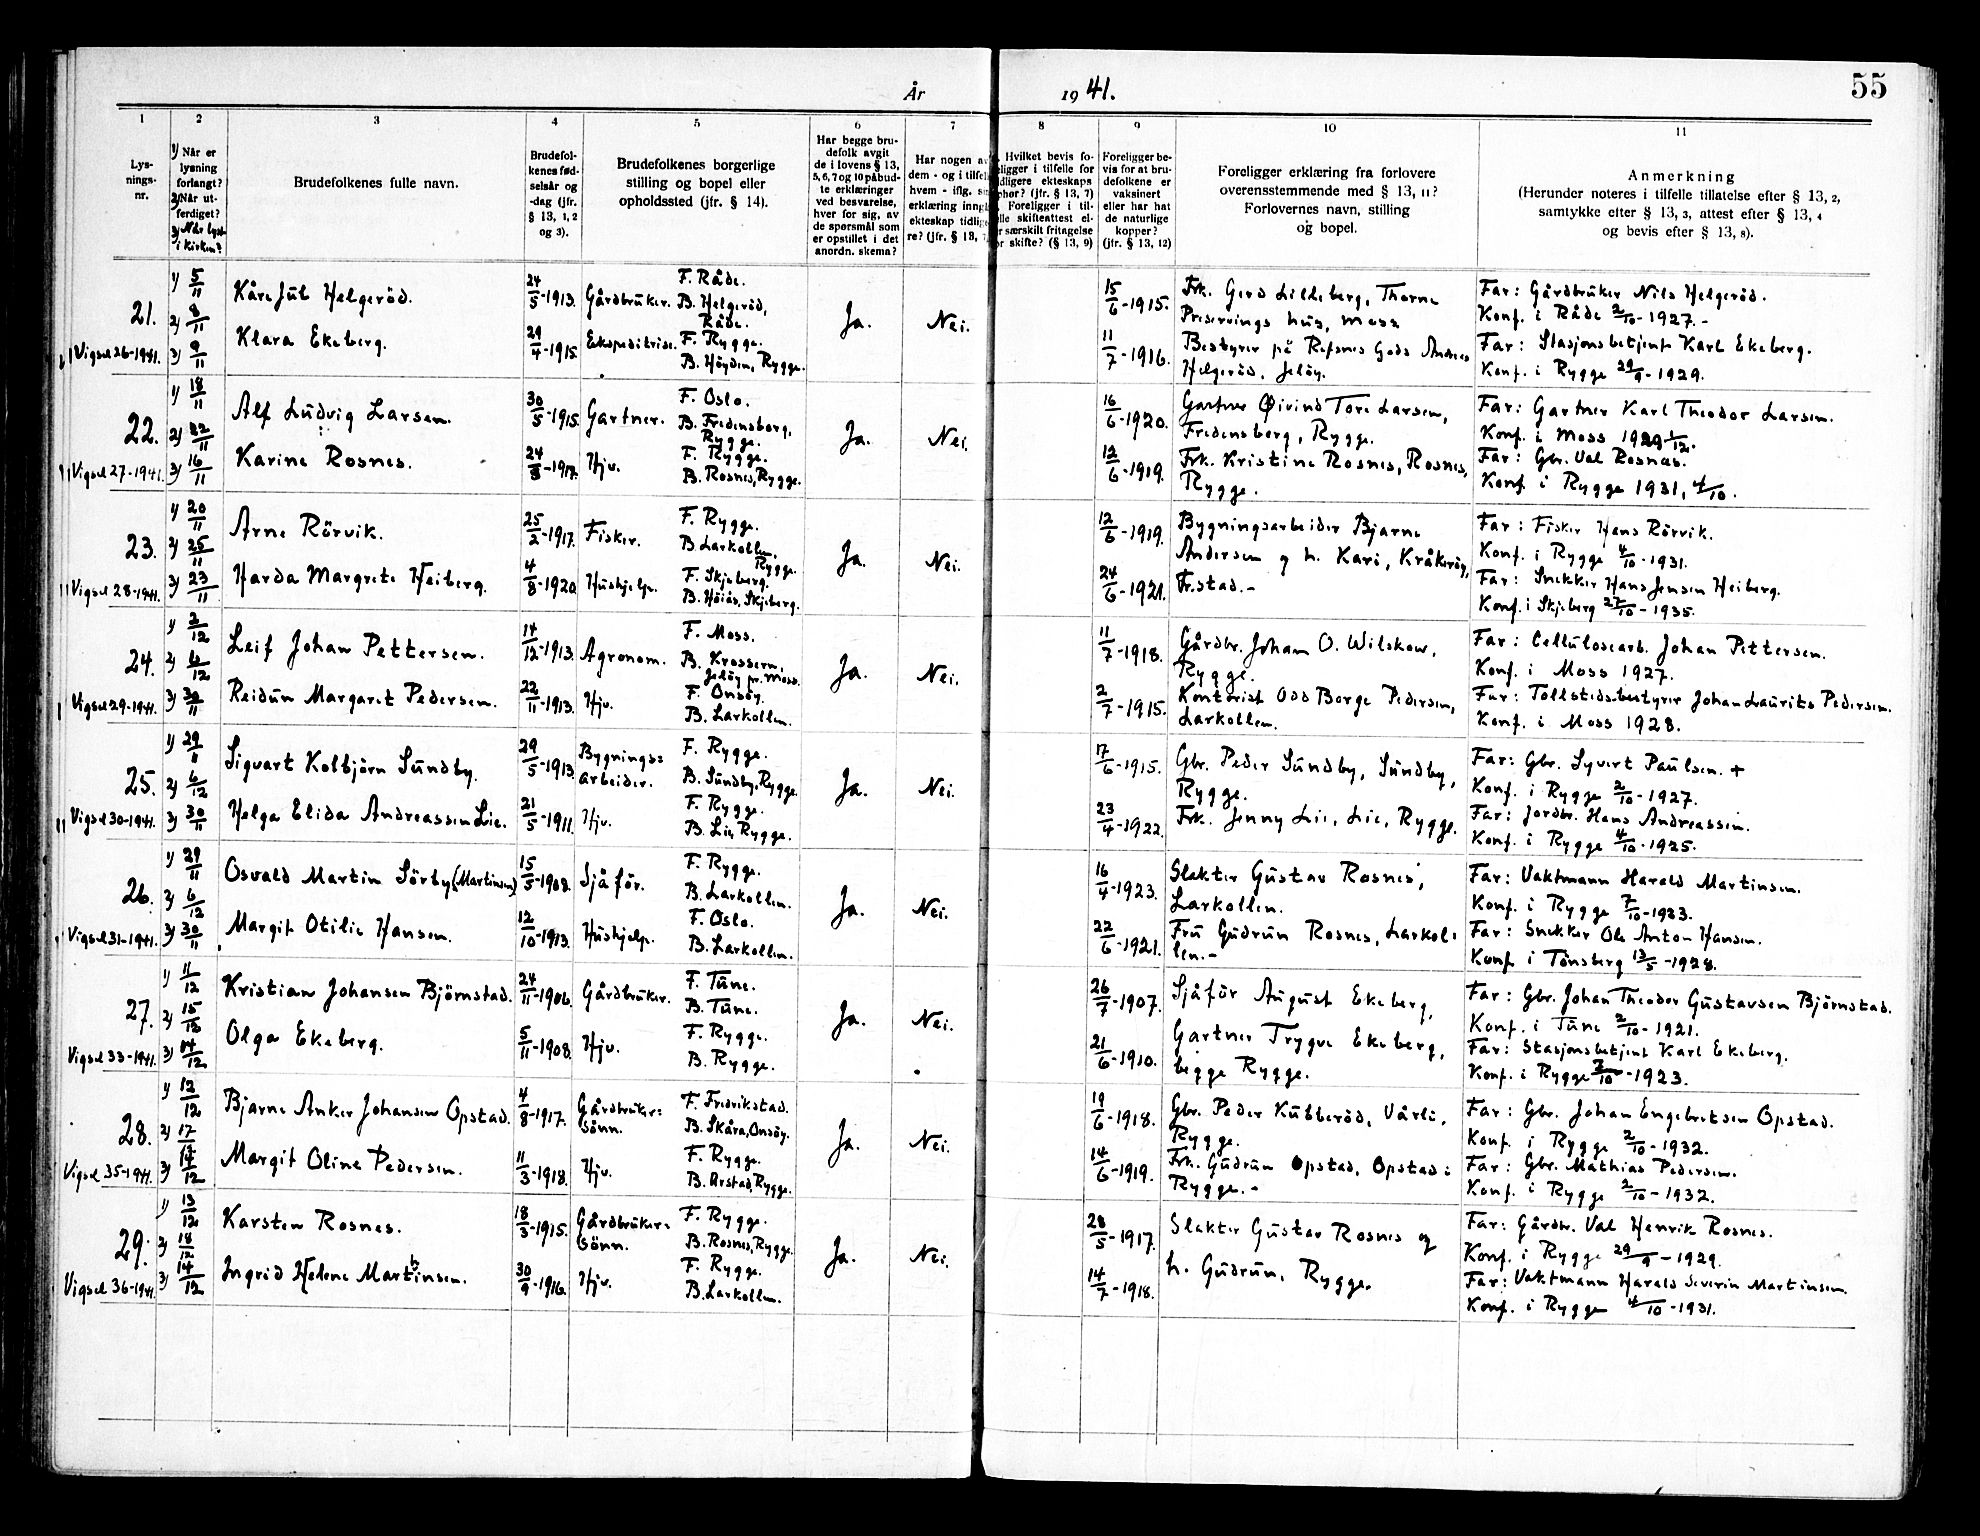 År 1941. 55
1 2 3 4 5 6 7 8 9 10 11
Lys-
nings-
nr.
1) Når er
lysning
forlangt?
2) Når ut-
ferdiget?
3) Når lyst
i kirken?
Brudefolkenes fulle navn.
Brudefol-
kenes fød-
selsår og
-dag (jfr.
§ 13, 1, 2
og 3).
Brudefolkenes borgerlige
stilling og bopel eller
opholdssted (jfr. § 14).
Har begge bru-
defolk avgit
de i lovens § 13,
5, 6, 7 og 10 påbud-
te erklæringer
ved besvarelse,
hver for sig, av
de spørsmål som
er opstillet i det
anordn. skema?
Har nogen a
dem - og i tilfel
hvem - iflg. s
erklæring inng
ekteskap tidlig
re? (jfr. § 13,
Hvilket bevis fo-
eligger i tilfelle for
idligere ekteskaps
phør? (jfr. § 13, 7)
Foreligger i til-
elle skifteattest el-
r særskilt fritagelse
or skifte? (§ 13, 9)
Foreligger be-
vis for at bru-
defolkene er
vaksinert
eller har hat
de naturlige
kopper?
(jfr. § 13, 12)
Foreligger erklæring fra forlovere
overensstemmende med § 13, 11?
Forlovernes navn, stilling
og bopel.
Anmerkning
(Herunder noteres i tilfelle tillatelse efter § 13, 2,
samtykke efter § 13, 3, attest efter § 13, 4
og bevis efter § 13, 8).
21.
Vigsel 26-1941.
1) 5/11
2) 8/11
3) 9/11
Kåre Jul Helgeröd.
Klara Ekeberg.
24/5-1913.
29/4-1915.
Gårdbruker.
F. Råde.
B. Helgeröd,
Råde.
Ekspeditrise. F. Rygge.
B. Höyden, Rygge.
Ja. Nei.
15/6-1915.
11/7-1916.
Frk. Gerd Lilleberg, Thorne
Preservings hus, Moss
Bestyrer på Refsnes Gods Andreas
Helgeröd, Jelöy.
Far: Gårdbruker Nils Helgeröd.
Konf. i Råde 2/10-1927.-
Far: Stasjonsbetjent Karl Ekeberg.
Konf. i Rygge 29/9-1929.
22.
Vigsel 27-1941.
1) 18/11
2) 22/11
3) 16/11
Alf Ludvig Larsen.
Karine Rosnes.
30/5-1915.
24/8-1917.
Gartner.
F. Oslo.
B. Fredensborg,
Rygge.
Hjv. F. Rygge.
B. Rosnes, Rygge.
Ja. Nei.
16/6-1920.
12/6-1919.
Gartner Øivind Tore Larsen,
Fredensberg, Rygge.
Frk. Kristine Rosnes, Rosnes,
Rygge.
Far: Gartner Karl Theodor Larsen.
Konf. i Moss 1929 1/12.
Far: Gbr. Val Rosnes.
Konf. i Rygge 1931, 4/10.
23.
Vigsel 28-1941.
1) 20/11
2) 25/11
3) 23/11
Arne Rörvik.
Harda Margrete Heiberg.
25/2-1917.
4/8-1920.
Fisker.
F. Rygge.
B. Larkollen,
Rygge.
Hushjelp. F. Skjeberg.
B. Höiås, Skjeberg.
Ja. Nei.
12/6-1919.
24/6-1921.
Bygningsarbeider Bjarne
Andersen og h. Kari, Kråkeröy,
Fr.stad.-
Far: Fisker Hans Rörvik.
Konf. i Rygge 4/10-1931.
Far: Snekker Hans Jensen Heiberg.
Konf. i Skjeberg 27/10-1935.
24.
Vigsel 29-1941.
1) 2/12
2) 6/12
3) 30/11
Leif Johan Pettersen.
Reidun Margaret Pedersen.
14/12-1913.
22/11-1913.
Agronom.
F. Moss.
B. Krossern,
Jelöy pr. Moss.
Hjv. F. Onsöy.
B. Larkollen.
Ja. Nei.
11/7-1918.
2/7-1915.
Gårdbr. Johan O. Wilskow,
Rygge.
Kontorist Odd Borge Pedersen,
Larkollen.
Far: Cellulosearb. Johan Pettersen.
Konf. i Moss 1927.
Far: Tollstedsbestyrer Johan Laurits Pedersen.
Konf. i Moss 1928.
25.
Vigsel 30-1941.
1) 29/11
2) 6/12
3) 30/11
Sigvart Kolbjörn Sundby.
Helga Elida Andreassen Lie.
29/5-1913.
21/5-1911.
Bygnings=
arbeider.
F. Rygge.
B. Sundby, Rygge.
Hjv. F. Rygge.
B. Lie, Rygge.
Ja. Nei.
17/6-1915.
23/4-1922.
Gbr. Peder Sundby, Sundby,
Rygge.
Frk. Jenny Lie, Lie, Rygge.
Far: Gbr. Syvert Paulsen. +
Konf. i Rygge 2/10-1927.
Far: Jordbr. Hans Andreassen.
Konf. i Rygge 4/10-1925.
26.
Vigsel 31-1941.
1) 29/11
2) 6/12
3) 30/11
Osvald Martin Sörby (Martinsen)
Margit Otilie Hansen.
15/5-1908.
12/10-1913.
Sjåför.
F. Rygge.
B. Larkollen.
Hushjelp. F. Oslo.
B. Larkollen.
Ja. Nei.
16/4-1923.
22/6-1921.
Slakter Gustav Rosnes,
Larkollen.
Fru Gudrun Rosnes, Larkol-
len.-
Far: Vaktmann Harald Martinsen.
Konf. i Rygge 7/10-1923.
Far: Snekker Ole Anton Hansen.
Konf. i Tönsberg 13/5-1928.
27.
Vigsel 33-1941.
1) 11/12
2) 15/12
3) 14/12
Kristian Johansen Björnstad.
Olga Ekeberg.
24/11-1906.
5/11-1908.
Gårdbruker.
F. Tune.
B. Tune.
Hjv. F. Rygge.
B. Rygge.
Ja. Nei.
26/7-1907.
21/6-1910.
Sjåför August Ekeberg,
Gartner Trygve Ekeberg,
begge Rygge.
Far: Gbr. Johan Theodor Gustavsen Björnstad.
Konf. i Tune 2/10-1921.
Far: Stasjonsbetjent Karl Ekeberg.
Konf. i Rygge 7/10-1923.
28.
Vigsel 35-1941.
1) 12/12
2) 17/12
3) 14/12
Bjarne Anker Johansen Opstad.
Margit Oline Pedersen.
4/8-1917.
11/3-1918.
Gårdbruker=
sönn.
F. Fredrikstad.
B. Skåra, Onsöy.
Hjv. F. Rygge.
B. Årstad, Rygge.
Ja. Nei.
19/6-1918.
14/6-1919.
Gbr. Peder Kubberöd, Vårli,
Rygge.
Frk. Gudrun Opstad, Opstad i
Rygge.-
Far: Gbr. Johan Engebretsen Opstad.
Konf. i Rygge 2/10-1932.
Far: Gbr. Mathias Pedersen.
Konf. i Rygge 2/10-1932.
29.
Vigsel 36-1941.
1) 13/12
2) 18/12
3) 14/12
Karsten Rosnes.
Ingrid Helene Marthinsen.
18/3-1915.
30/9-1916.
Gårdbruker=
sönn.
F. Rygge.
B. Rosnes, Rygge.
Hjv. F. Rygge.
B. Larkollen.
Ja. Nei.
28/5-1917.
14/7-1918.
Slakter Gustav Rosnes og
h. Gudrun, Rygge.
Far: Gårdbr. Val Henrik Rosnes.
Konf. i Rygge 29/9-1929.
Far: Vaktmann Harald Severin Martinsen.
Konf. i Rygge 4/10-1931.